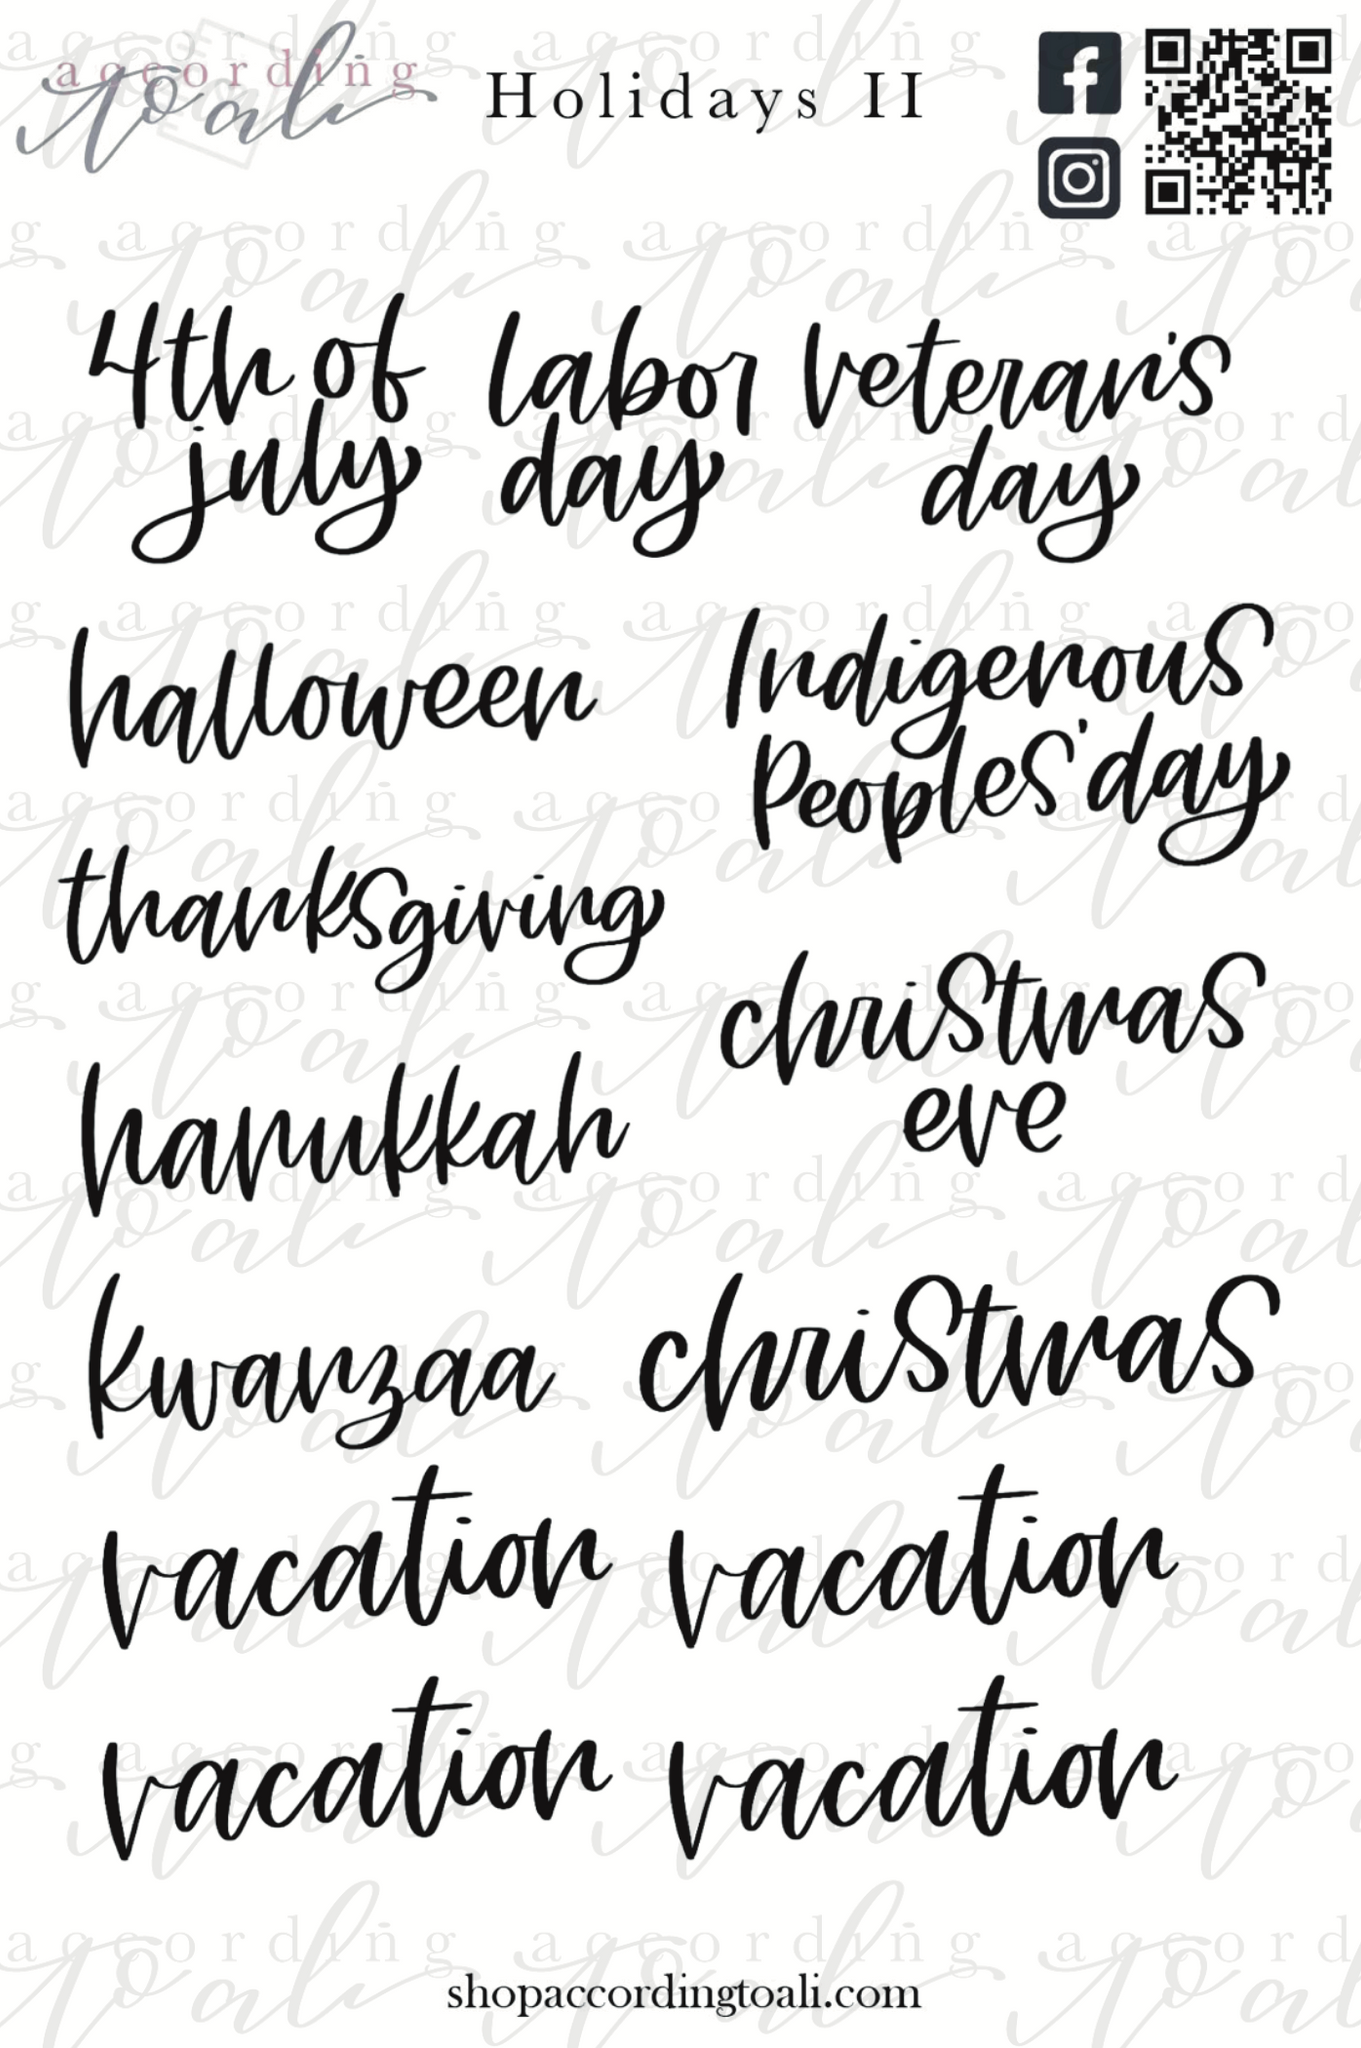 according
to ali
Holidays II
4th of
july
labor
day
veteran's
day
halloween
Indigenous
Peoples' day
thanksgiving
christmas
eve
hanukkah
kwanzaa
christmas
vacation vacation
vacation vacation
shopaccordingtoali.com